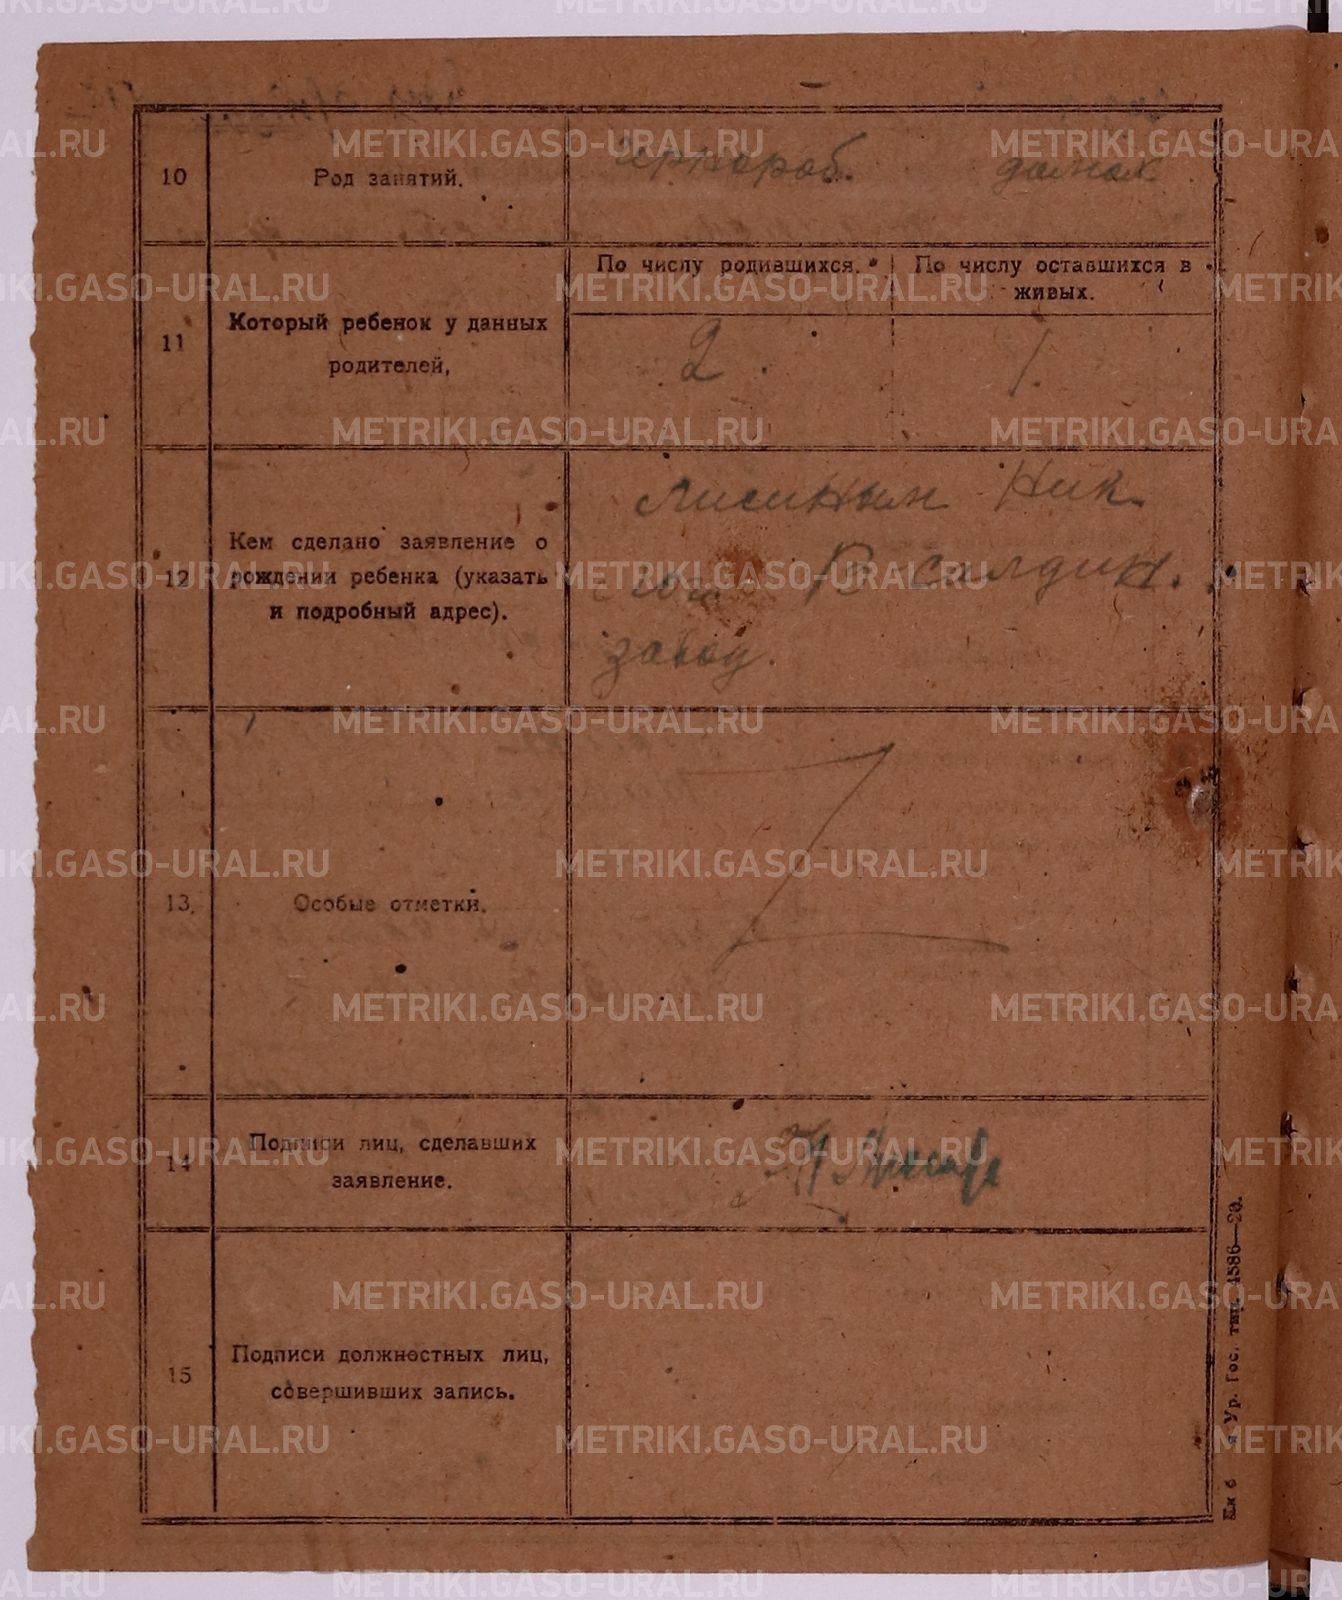 10
Род занятий.
чернораб.
домох.
11
Который ребенок у данных
родителей,
По числу родившихся.
По числу оставшихся в
живых.
2.
1.
12
Кем сделано заявление о
рождении ребенка (указать
и подробный адрес).
Лисиным Ник.
В салдин.
завод.
13.
Особые отметки.
14
Подписи лиц, сделавших
заявление.
15
Подписи должностных лиц,
совершивших запись.
Ур. Гос. тип. 4586—20.
METRIKI.GASO-URAL.RU